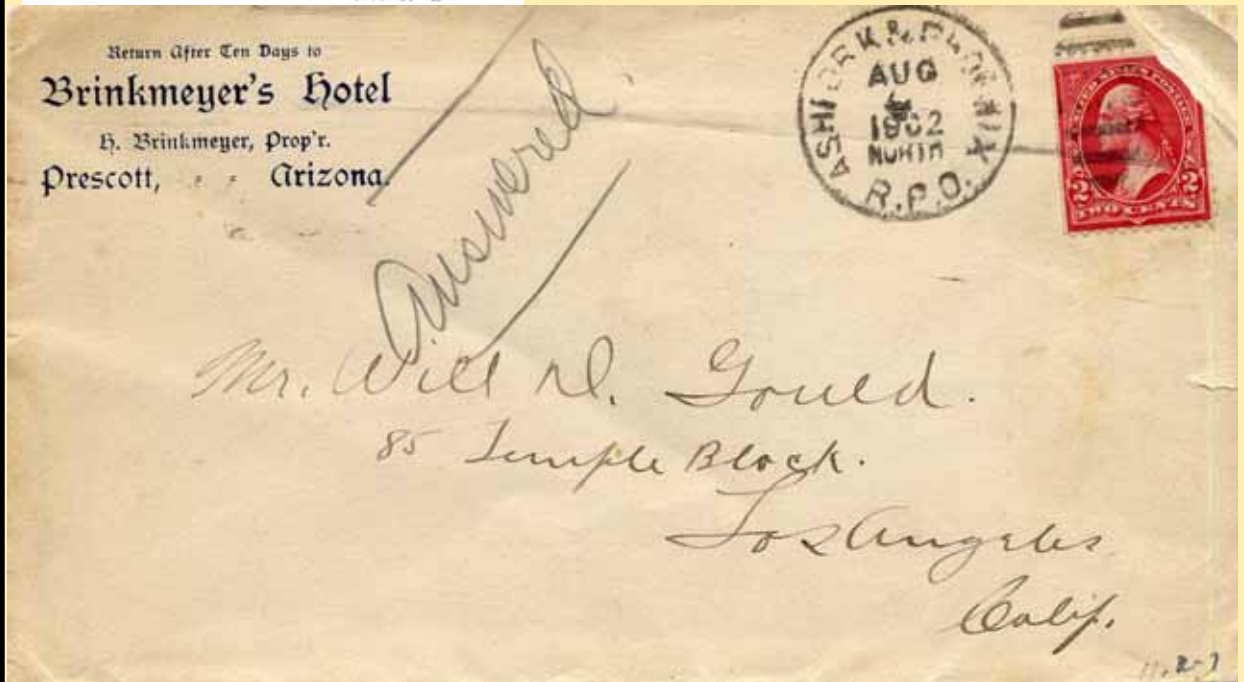 Return After Ten Days to
Brinkmeyer's Hotel
H. Brinkmeyer, Prop'r.
Prescott, Arizona.
Answered
ASH FORK & PHOENIX
AUG
1902
NORTH
R.P.O.
UNITED STATES POSTAGE
2 2
TWO CENTS
Mr. Will D. Gould.
85 Temple Block.
Los Angeles
Calif.